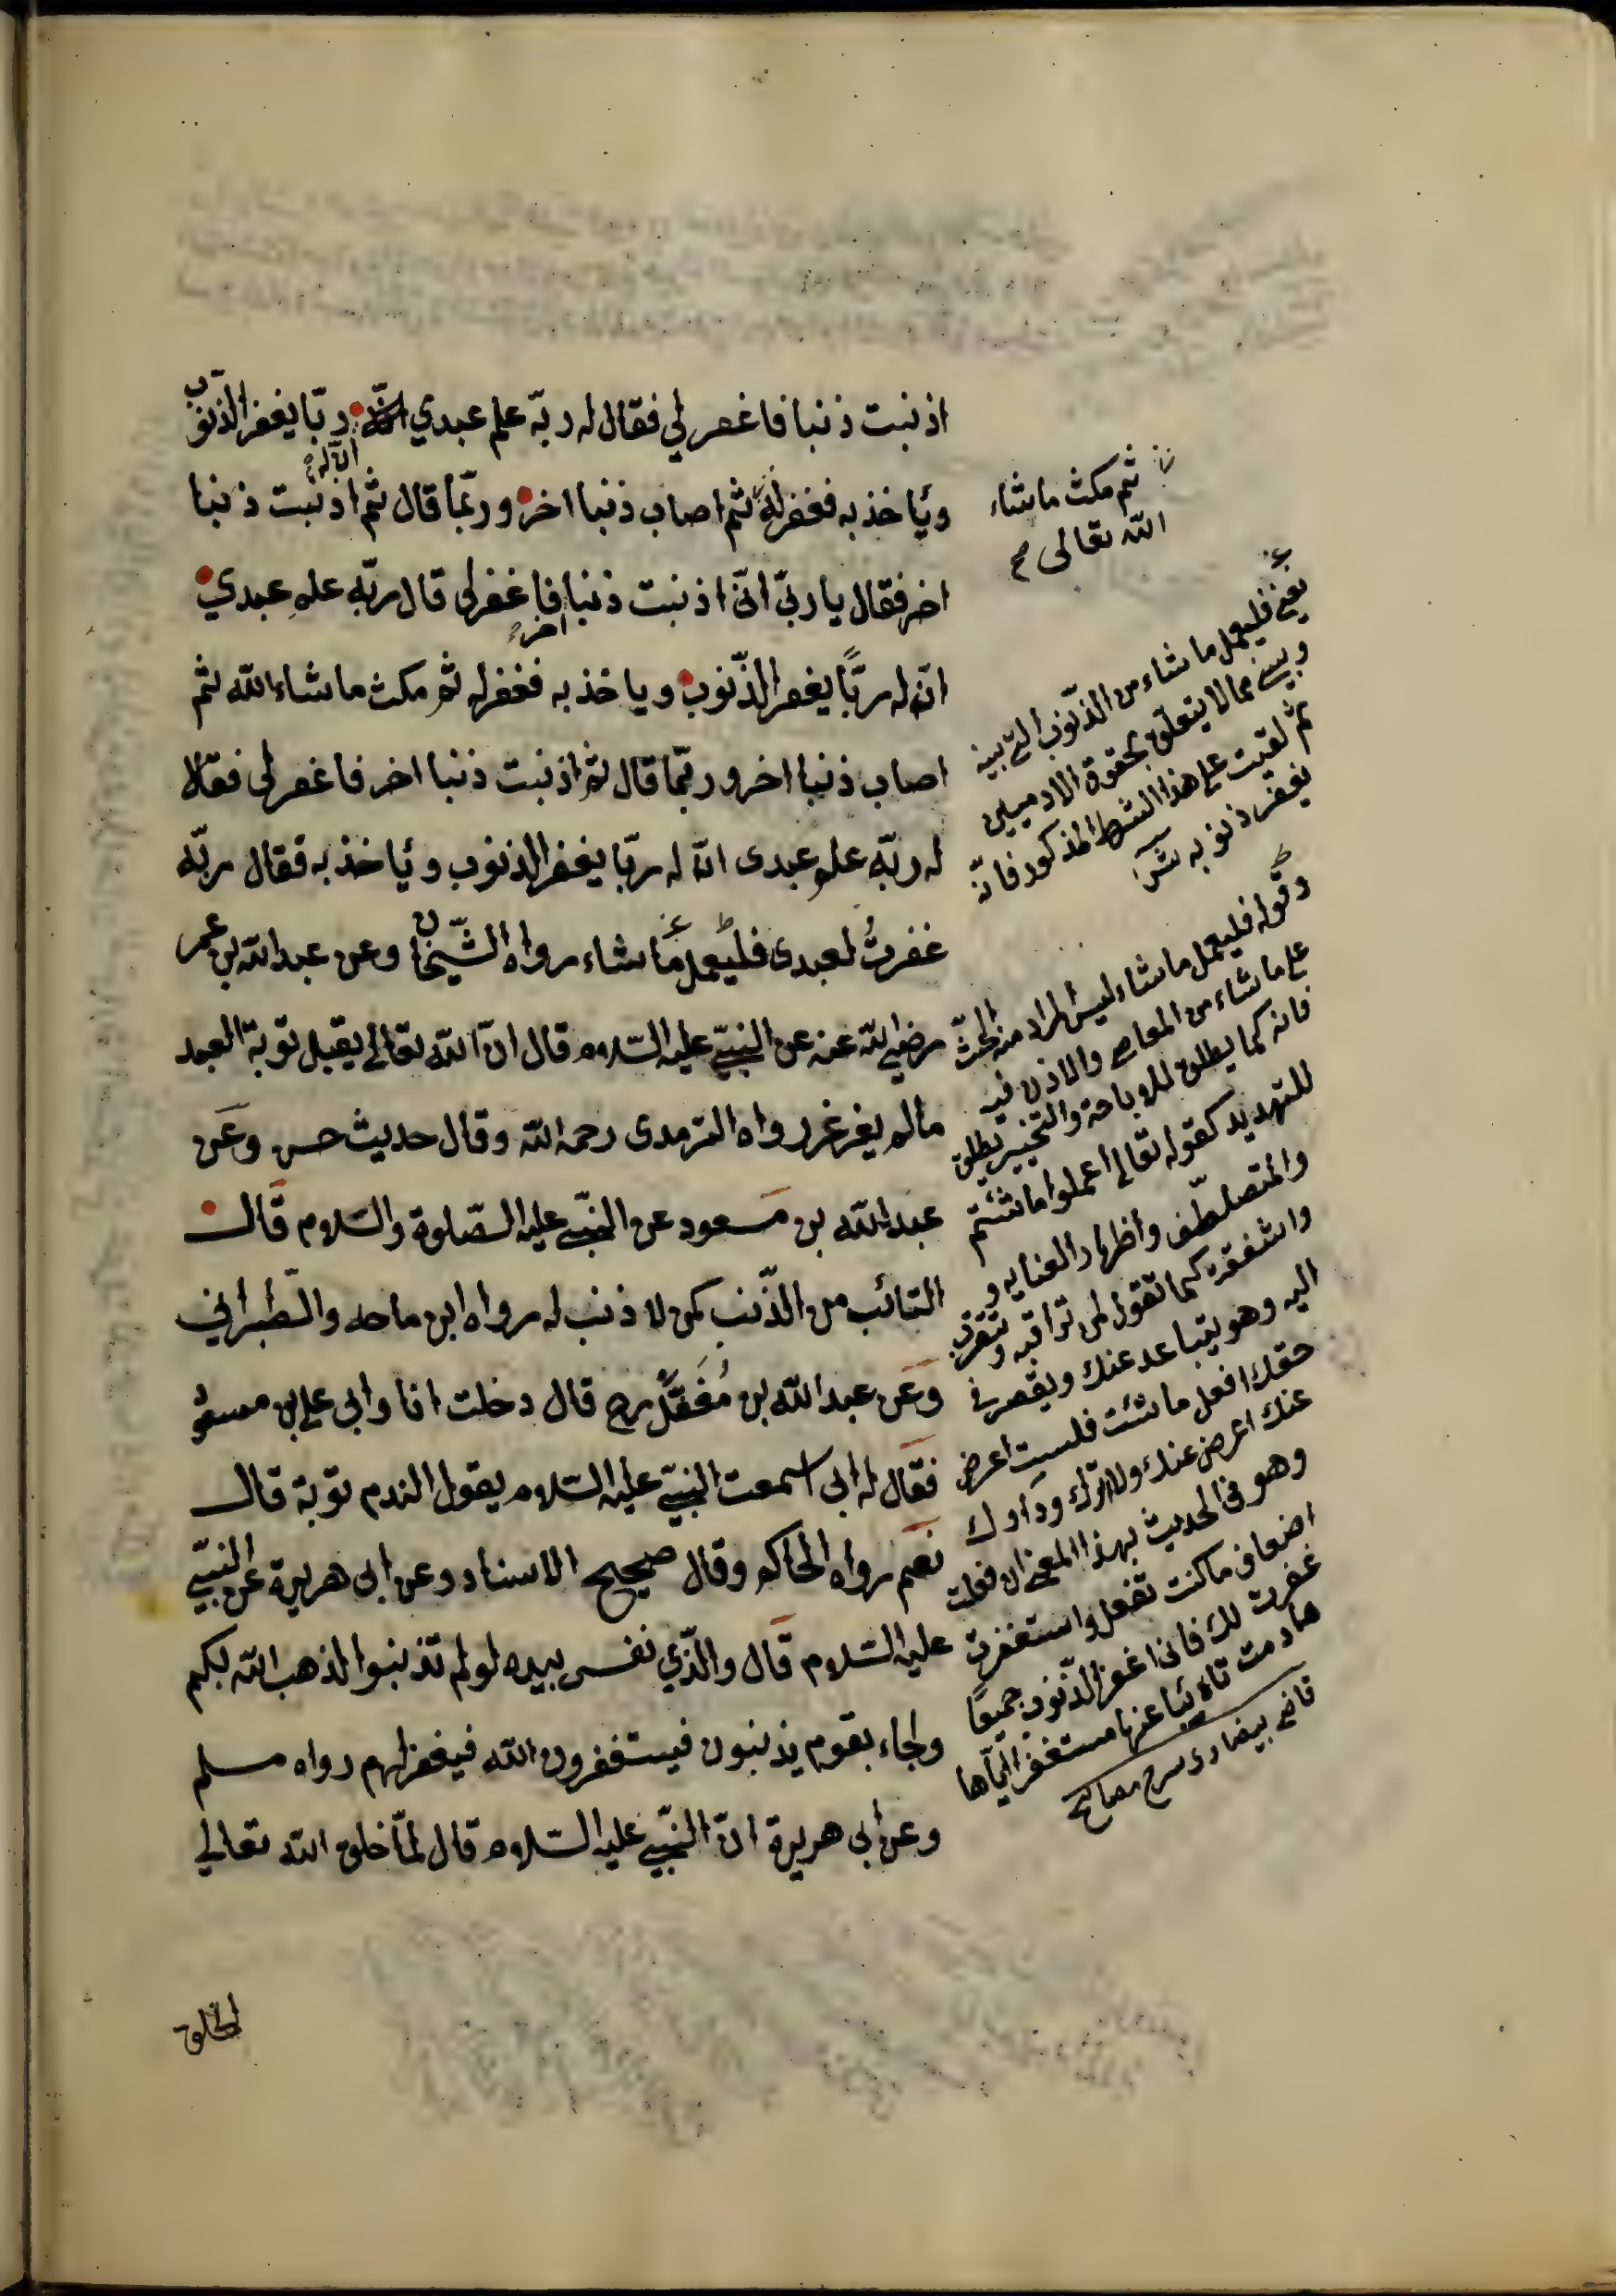 اذنبت ذنبا فاغفر لي فقال له ربّه علم عبدي ربّا يغفر الذنوب
انّ له
ويأخذ به فغفر له ثم اصاب ذنبا اخر وربّما قال ثم اذنبت ذنبا
اخر فقال يا ربّ انّى اذنبت ذنبا فاغفر لى قال ربّه علم عبدي
اخر
انّ له ربّاً يغفر الذّنوب وياخذ به فغفر له ثم مكث ماشاء الله ثم
اصاب ذنبا اخر وربّما قال ثم اذنبت ذنبا اخر فاغفر لى فقالا
له ربّه علم عبدى انّ له ربّا يغفر الذنوب وياخذ به فقال ربّه
غفرتُ لعبدى فليعمل ماشاء رواه الشّيخان وعن عبد الله بن عمر
رضي الله عنه عن النبيّ عليه السّلام قال انّ الله تعالى يقبل توبة العبد
مالم يغرغر رواه الترمدى رحمه الله وقال حديث حسن وعَن
عبد الله بن مسعود عن النبيّ عليه الصّلوة والسّلام قال
التائب من الذّنب كمن لا ذنب له رواه ابن ماجه والطّبرانى
وعَن عبد الله بن مُغَفّل رح قال دخلت انا وابى على بن مسعود
فقال له ابى اسمعت النبيّ عليه السّلام يقول الندم توبة قال
نعم رواه الحاكم وقال صحيح الاسناد وعن ابى هريرة عن النبيّ
عليه السّلام قال والّذي نفسى بيده لو لم تذنبوا لذهب الله بكم
ولجاء بقوم يذنبون فيستغفرون الله فيغفر لهم رواه مسلم
وعن ابى هريرة انّ النبيّ عليه السّلام قال لمّا خلق الله تعالي
الخلق
ثم مكث ماشاء
الله تعالى صح
يعنى فليعمل ماشاء من الذّنوب التى بينه
وبينى ممالا يتعلّق بحقوق الادميين
ثم على هذا الشرط المذكور فانّه
يغفر ذنوبه
وقوله فليعمل ماشاء ليس المراد منه الحثّ
على ماشاء من المعاصى والاذن فيه
فانه كما يطلق للاباحة والتخيير يطلق
للتهديد كقوله تعالى اعملوا ما شئتم
والتلطّف واظهار العناية و
الشفقة كما تقول لمن تراقبه وتتقرب
اليه وهو يتباعد عنك ويقصر فى
حقك افعل ماشئت فلست اعرض
عنك ولا اترك ودادك
وهو فى الحديث بهذا المعنى ان فعلت
اضعاف ما كنت تفعل واستغفرت
غفرت لك فانى اغفر الذّنوب جميعًا
مادمت تائبا عنها مستغفرا ايّاها
قاضى بيضاوى شرح مصابيح